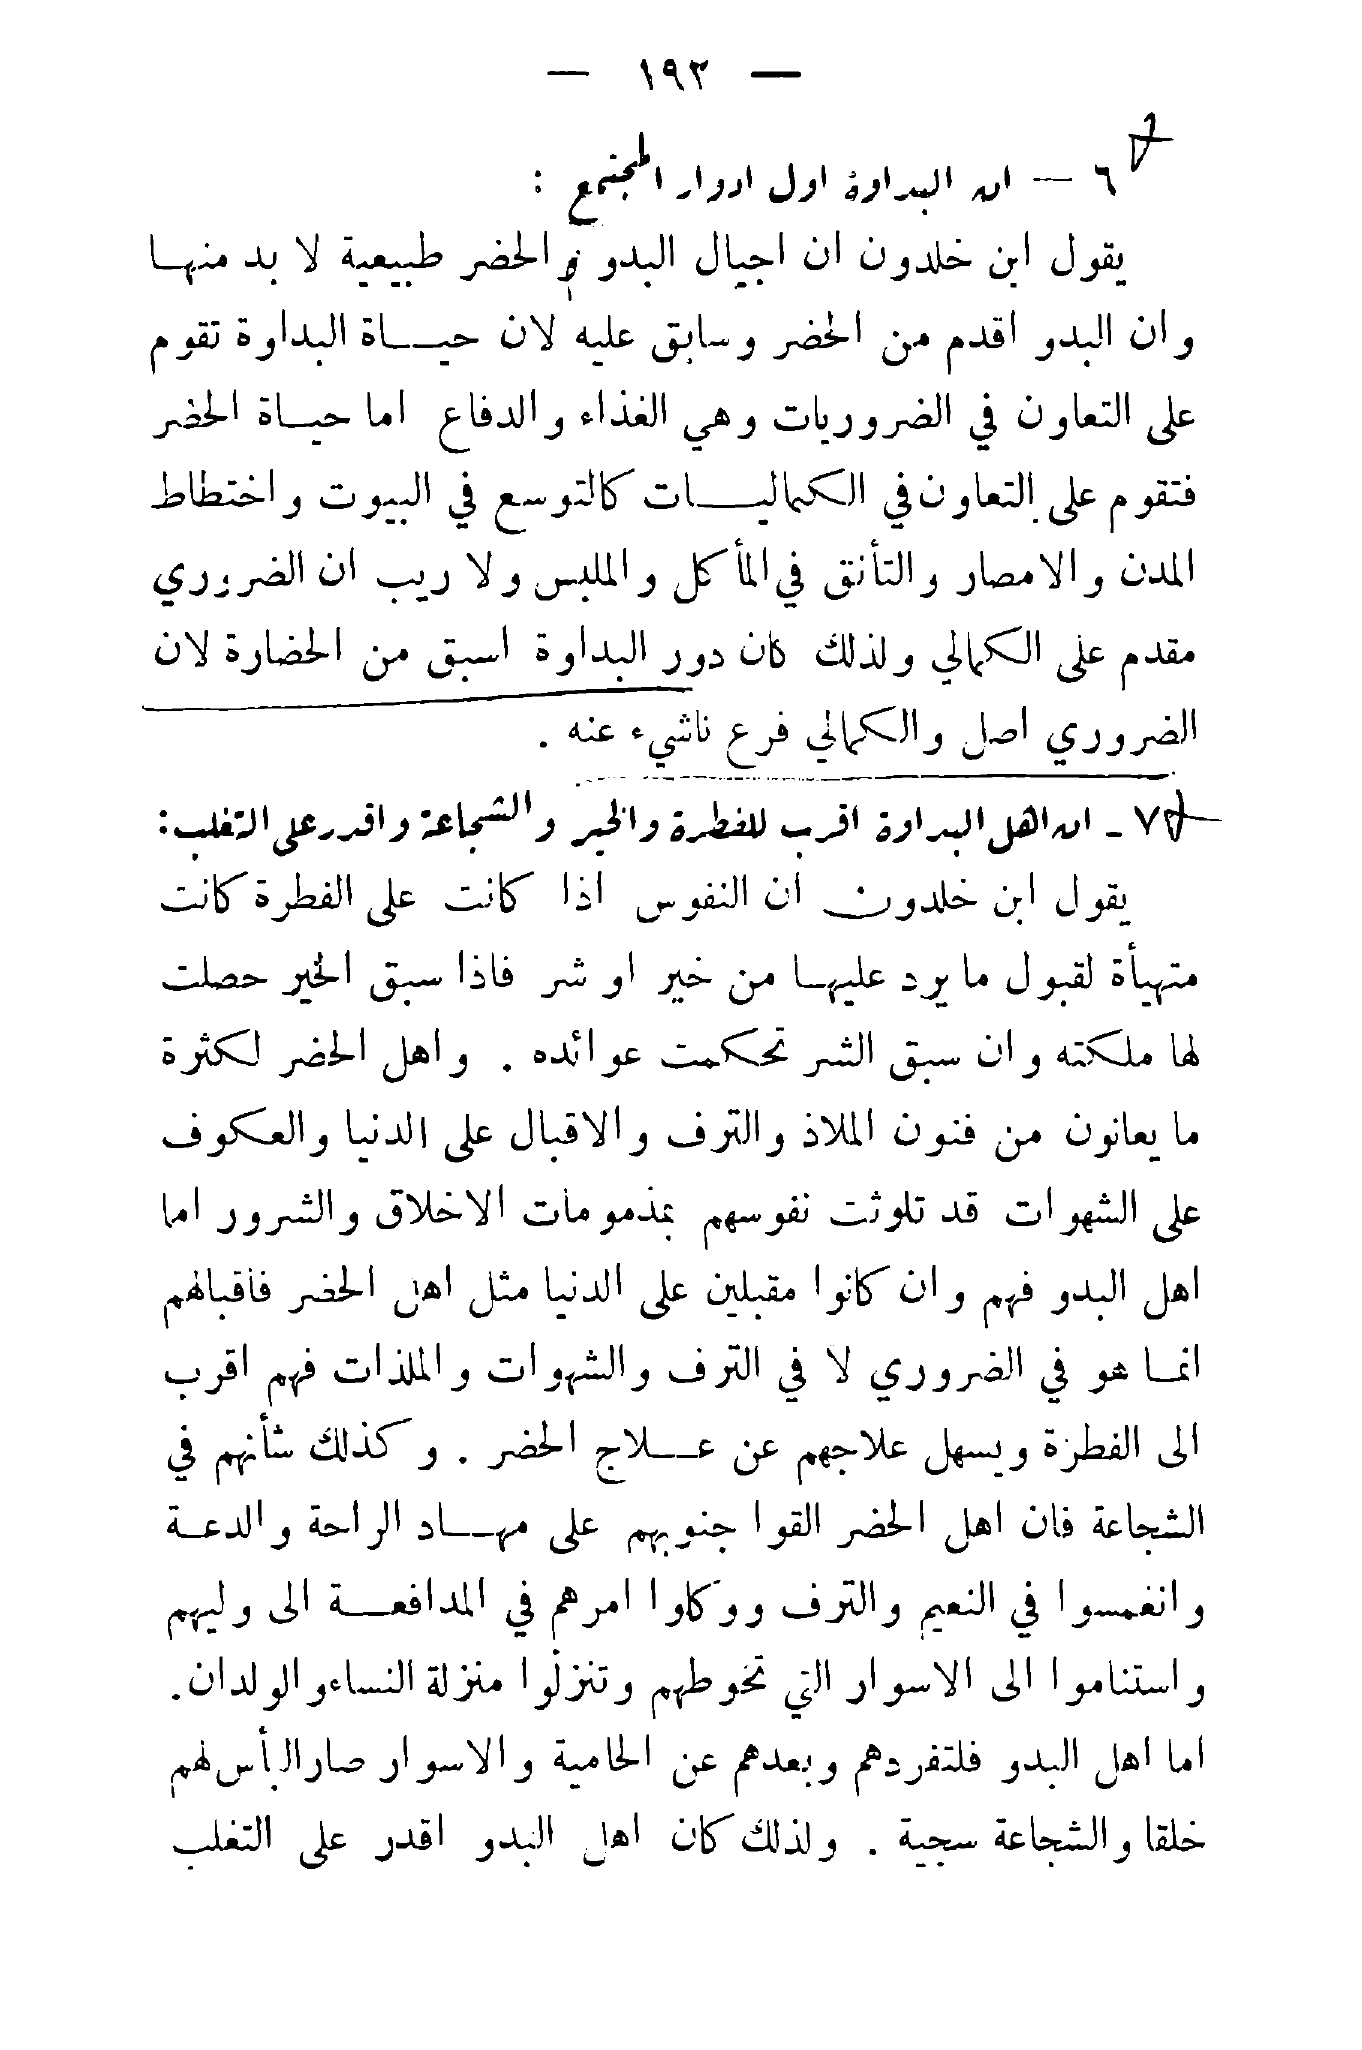 — ١٩٣ —
٦ — ان البداوة اول ادوار المجتمع :
يقول ابن خلدون ان اجيال البدو والحضر طبيعية لا بد منها
وان البدو اقدم من الحضر وسابق عليه لان حياة البداوة تقوم
على التعاون في الضروريات وهي الغذاء والدفاع اما حياة الحضر
فتقوم على التعاون في الكماليات كالتوسع في البيوت واختطاط
المدن والامصار والتأنق في المأكل والملبس ولا ريب ان الضروري
مقدم على الكمالي ولذلك كان دور البداوة اسبق من الحضارة لان
الضروري اصل والكمالي فرع ناشيء عنه .
٧ - ان اهل البداوة اقرب للفطرة والخير والشجاعة واقدر على التغلب :
يقول ابن خلدون ان النفوس اذا كانت على الفطرة كانت
متهيأة لقبول ما يرد عليها من خير او شر فاذا سبق الخير حصلت
لها ملكته وان سبق الشر تحكمت عوائده . واهل الحضر لكثرة
ما يعانون من فنون الملاذ والترف والاقبال على الدنيا والعكوف
على الشهوات قد تلوثت نفوسهم بمذمومات الاخلاق والشرور اما
اهل البدو فهم وان كانوا مقبلين على الدنيا مثل اهل الحضر فاقبالهم
انما هو في الضروري لا في الترف والشهوات والملذات فهم اقرب
الى الفطرة ويسهل علاجهم عن علاج الحضر . وكذلك شأنهم في
الشجاعة فان اهل الحضر القوا جنوبهم على مهاد الراحة والدعة
وانغمسوا في النعيم والترف ووكلوا امرهم في المدافعة الى وليهم
واستناموا الى الاسوار التي تحوطهم وتنزلوا منزلة النساء والولدان .
اما اهل البدو فلتفردهم وبعدهم عن الحامية والاسوار صار البأس لهم
خلقا والشجاعة سجية . ولذلك كان اهل البدو اقدر على التغلب